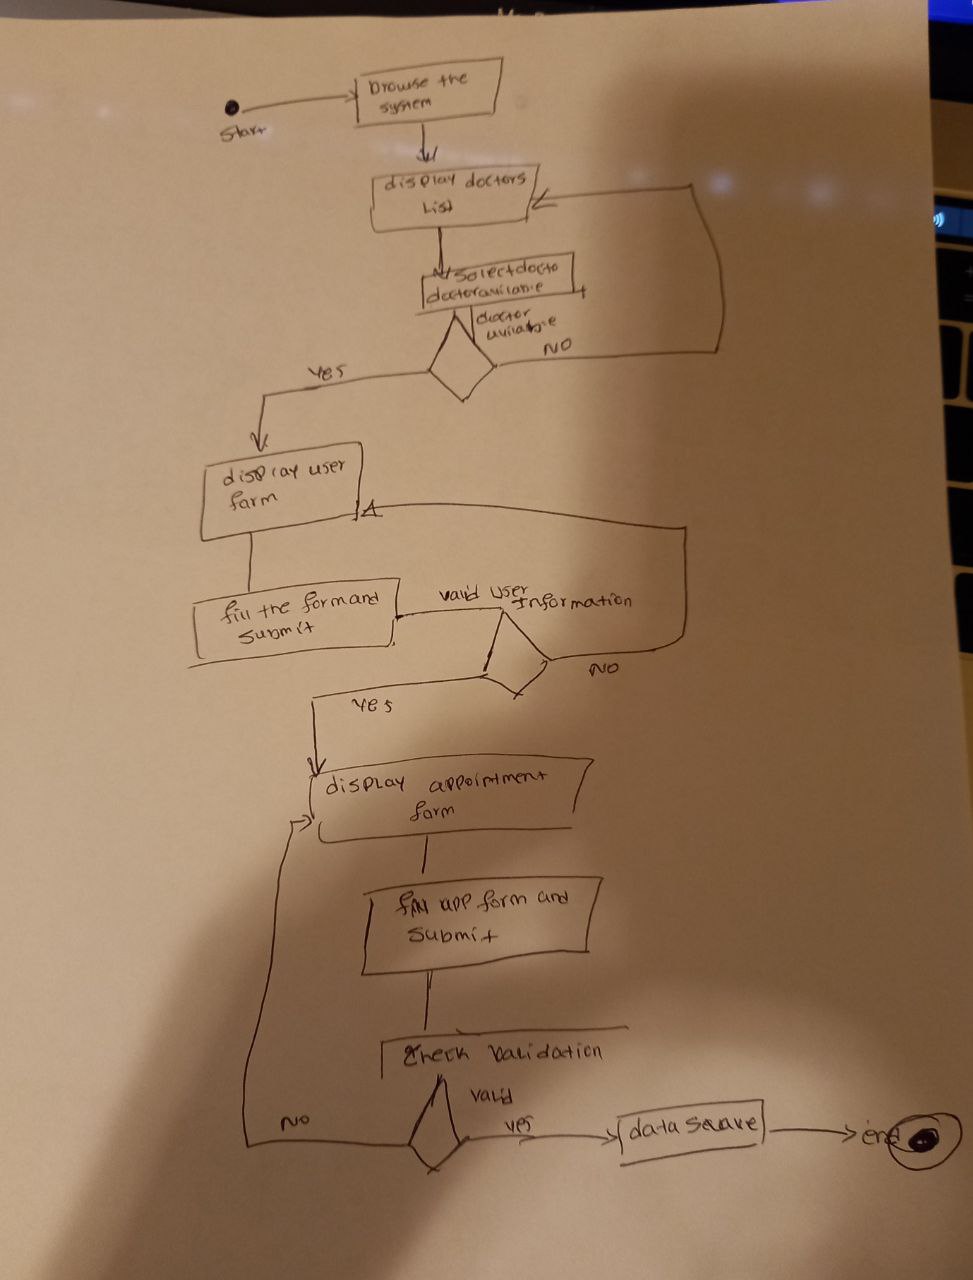 Start
browse the
system
display doctors
List
Select docto
doctor avilable
doctor
avilable
NO
Yes
display user
farm
fill the form and
submit
valid user
Information
NO
Yes
display appointment
farm
app form and
submit
Check validation
valid
yes
NO
data
end